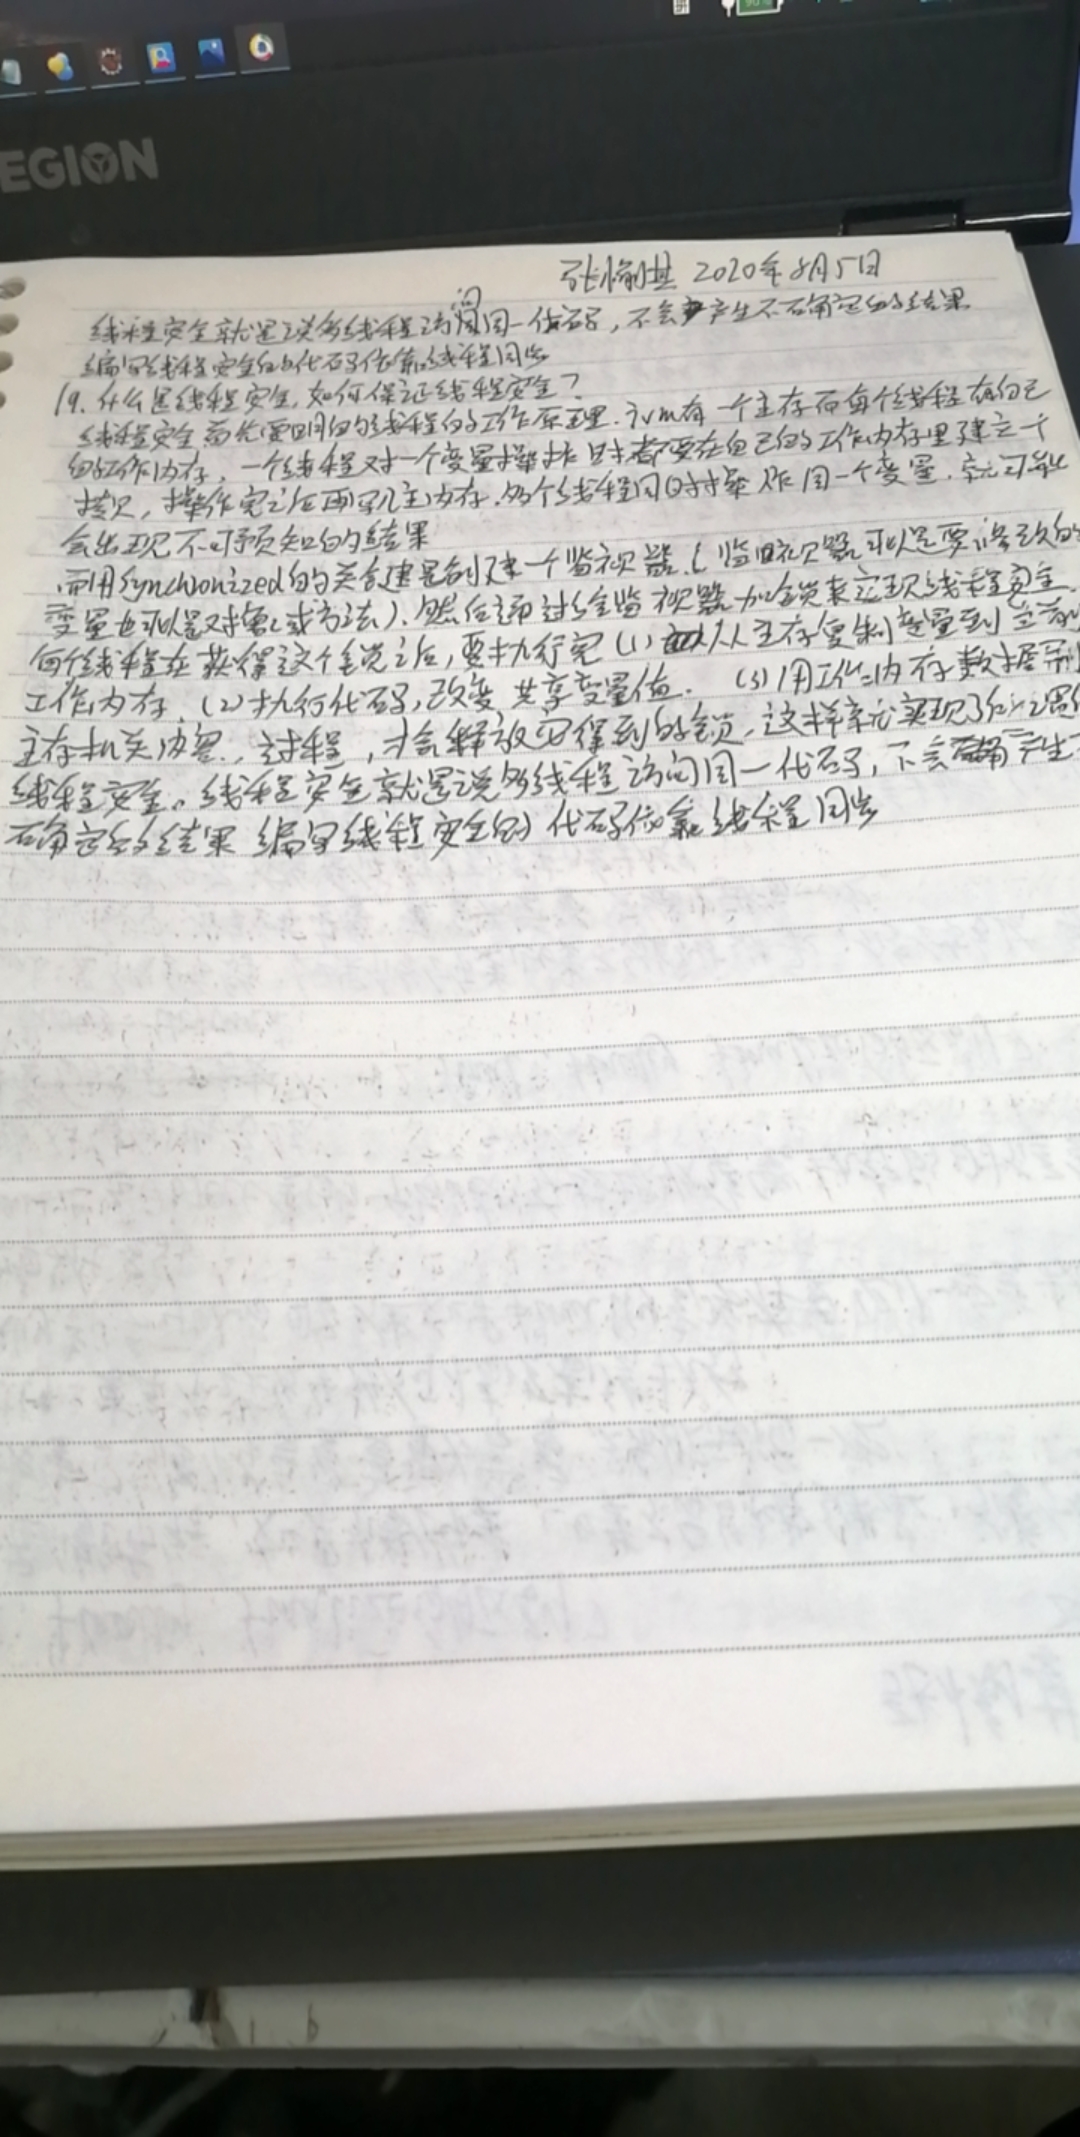 90%
EGION
张愉基 2020年8月5日
线程安全就是说多线程访问同一代码，不会产生不确定的结果
编写线程安全的代码依靠线程同步
19. 什么是线程安全，如何保证线程安全？
线程安全首先要明白线程的工作原理，jvm有一个主存而每个线程有自己
的工作内存，一个线程对一个变量操作时都要在自己的工作内存里建立一个
拷贝，操作完之后再写入主内存。多个线程同时操作同一个变量，就可能
会出现不可预知的结果
而用synchronized的关键是创建一个监视器（监视器可以是要修改的
变量也可以是对象或方法）。然后通过给监视器加锁来实现线程安全，
每个线程在获得这个锁之后，要执行完（1）从主存复制变量到当前
工作内存（2）执行代码，改变共享变量值．（3）用工作内存数据刷
主存相关内容．过程，才会释放它得到的锁，这样就实现了
线程安全。线程安全就是说多线程访问同一代码，不会产生不
确定的结果 编写线程安全的代码依靠线程同步